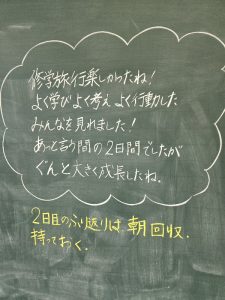 修学旅行楽しかったね！
よく学びよく考えよく行動した
みんなを見れました！
あっと言う間の2日間でしたが
ぐんと大きく成長したね．
2日目のふり返りは 朝回収．
持っておく．